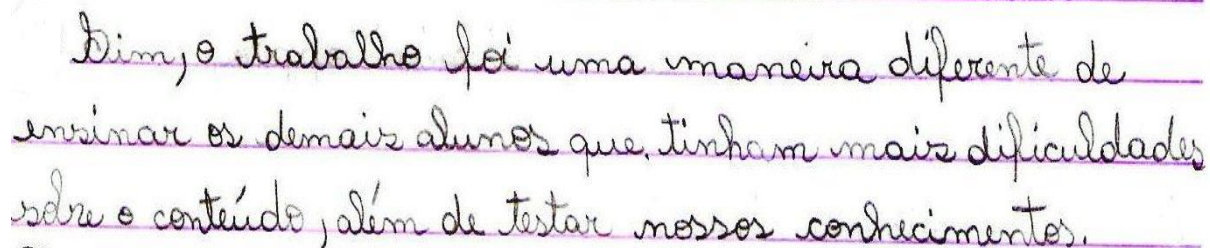 Sim, o trabalho foi uma maneira diferente de
ensinar os demais alunos que tinham mais dificuldades
sobre o conteúdo, além de testar nossos conhecimentos.